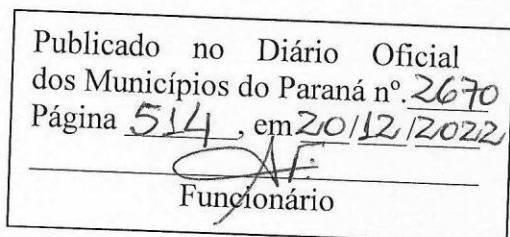 Publicado no Diário Oficial
dos Municípios do Paraná nº. 2670
Página 514, em 20/12/2022
Funcionário